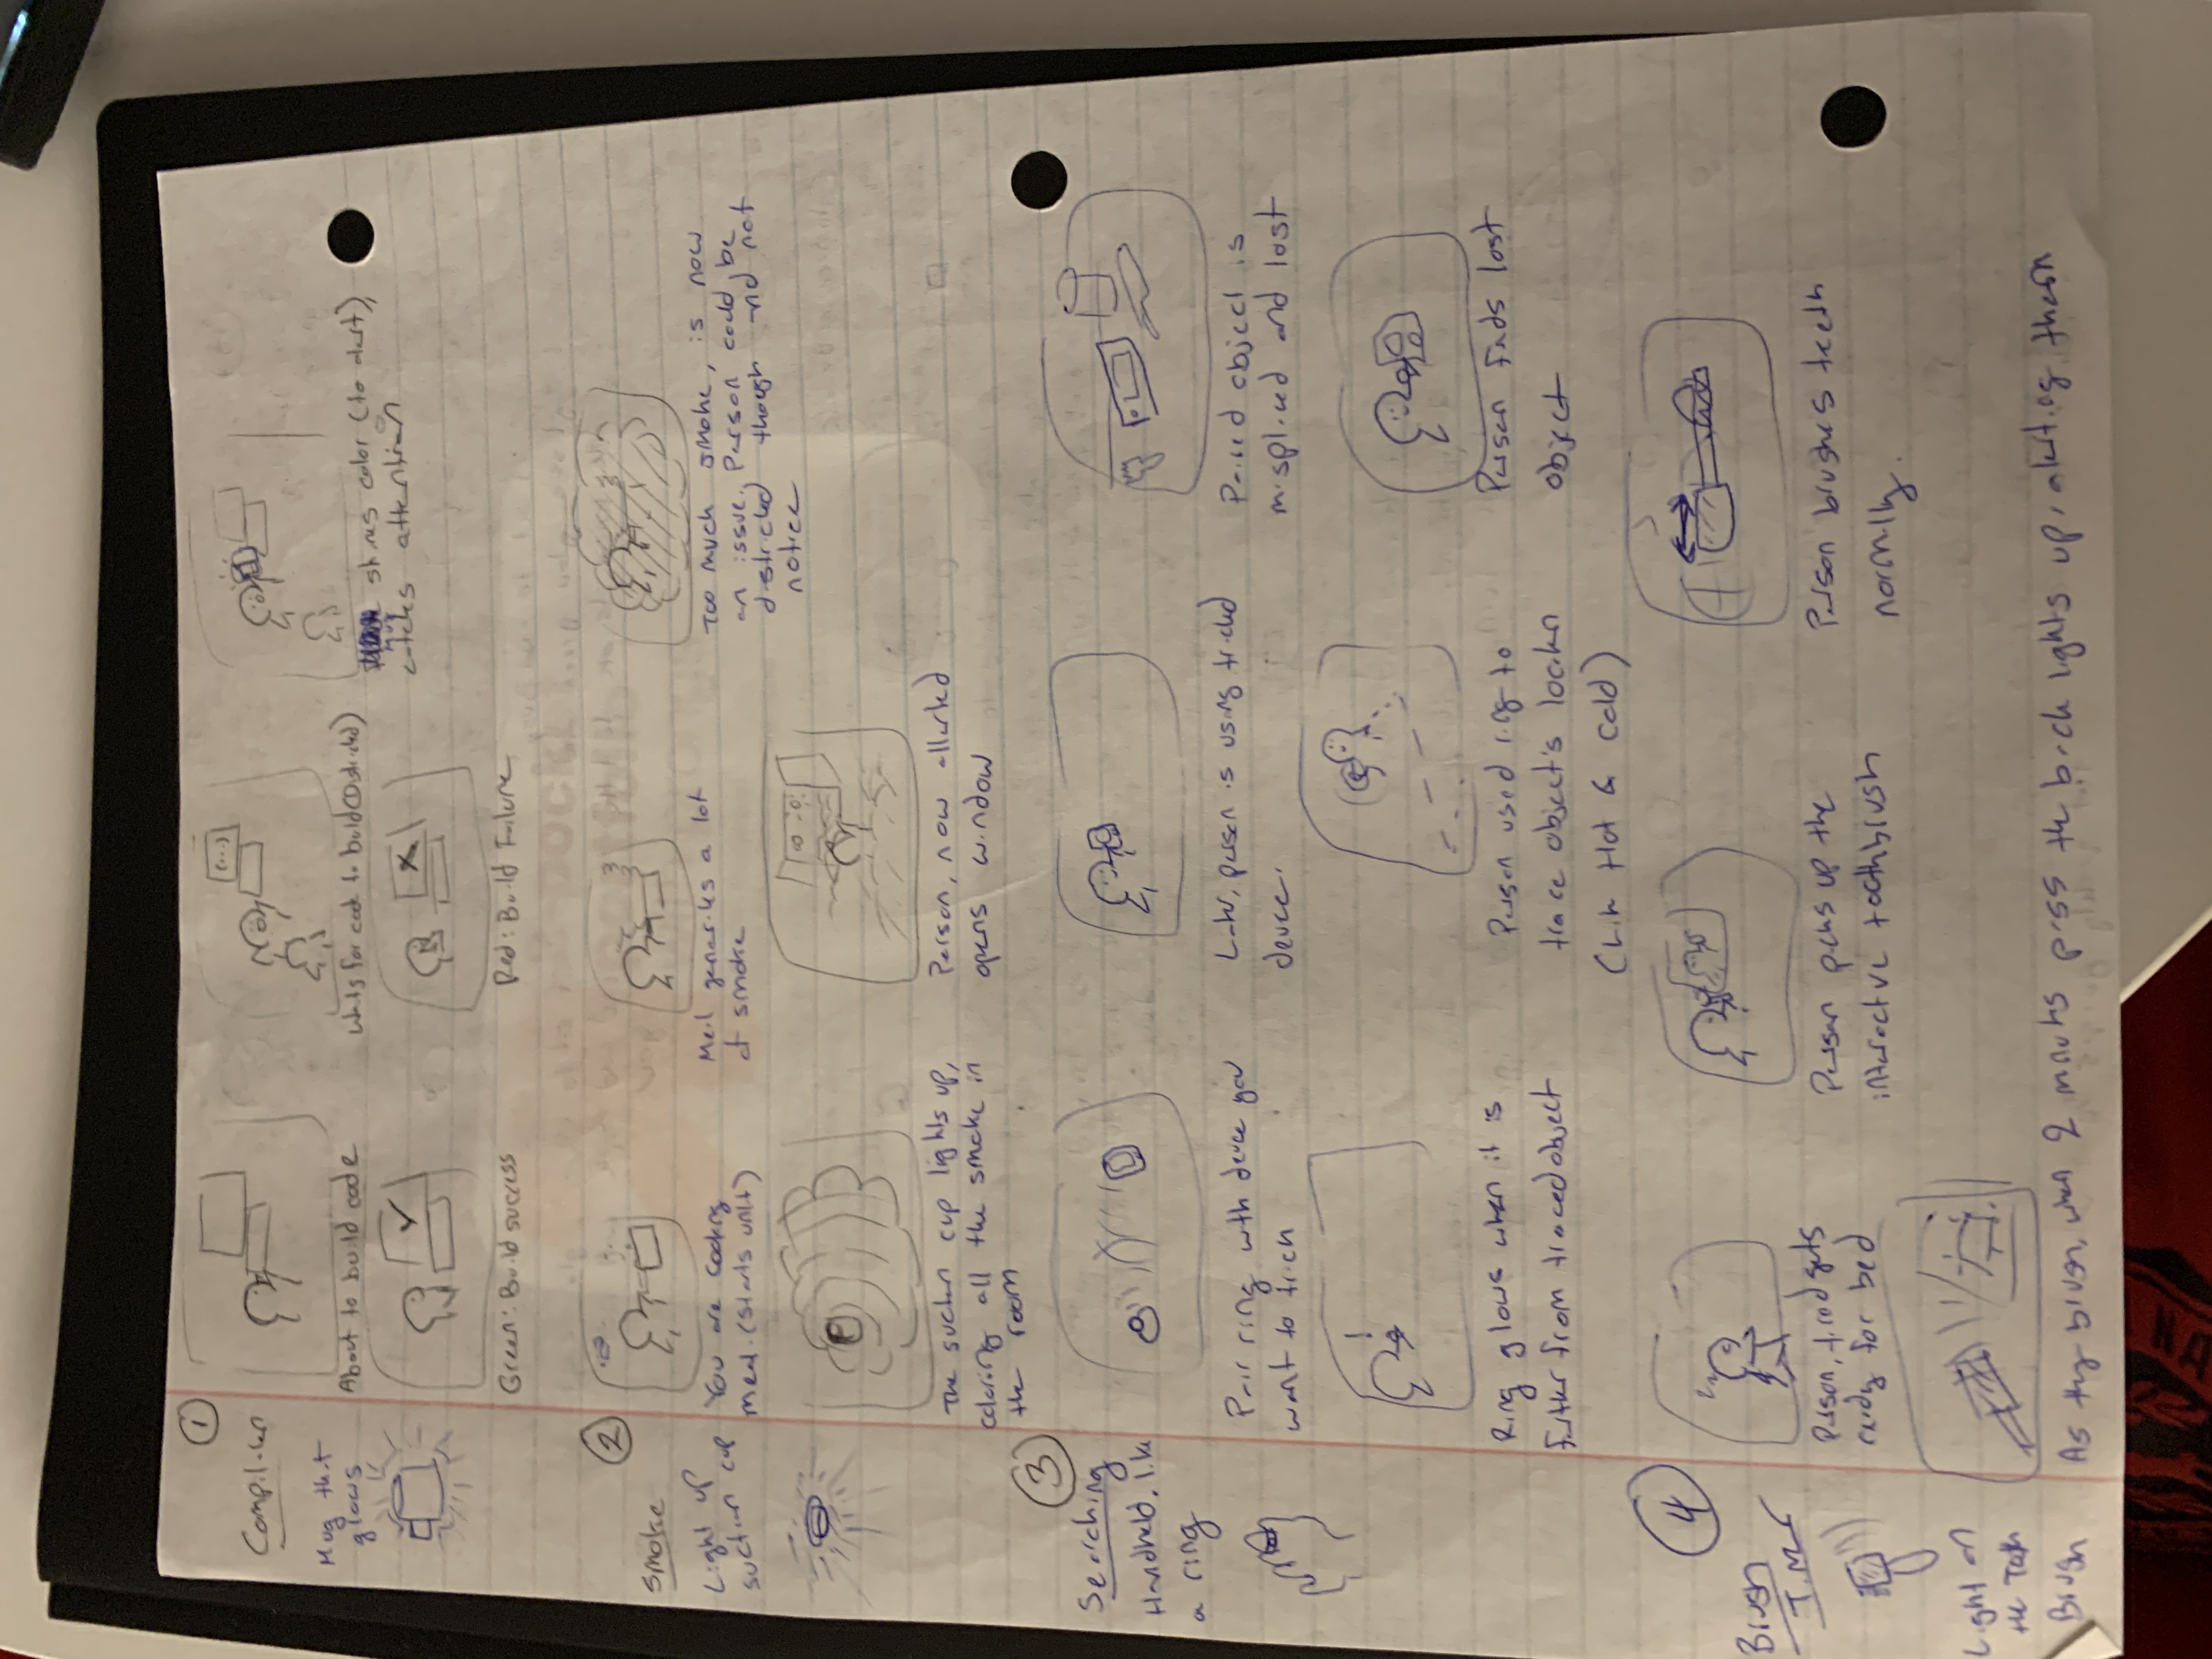 1
Compilation
Mug that
glows
(...)
About to build code
Waits for code to build (Distracted)
Mug shines color (to alert),
catches attention
Green: Build success
Red: Build Failure
2
Smoke
Light up
suction cup
You are cooking
meal. (starts unlit)
Meal generates a lot
of smoke
Too much smoke, is now
an issue. Person could be
distracted though and not
notice
The suction cup lights up,
coloring all the smoke in
the room
Person, now allerted
opens window
3
Searching
Handheld, like
a ring
Pair ring with device you
want to track
Later, person is using tracked
device.
Paired object is
misplaced and lost
!
Ring glows when it is
further from traced object
Person used ring to
trace object's location
(Like Hot & Cold)
Person finds lost
object
4
Brush
Timer
Light on
the Tooth
Brush
Person, tired gets
ready for bed
Person picks up the
interactive toothbrush
Person brushes teeth
normally.
As they brush, when 2 minutes pass the back lights up, alerting them